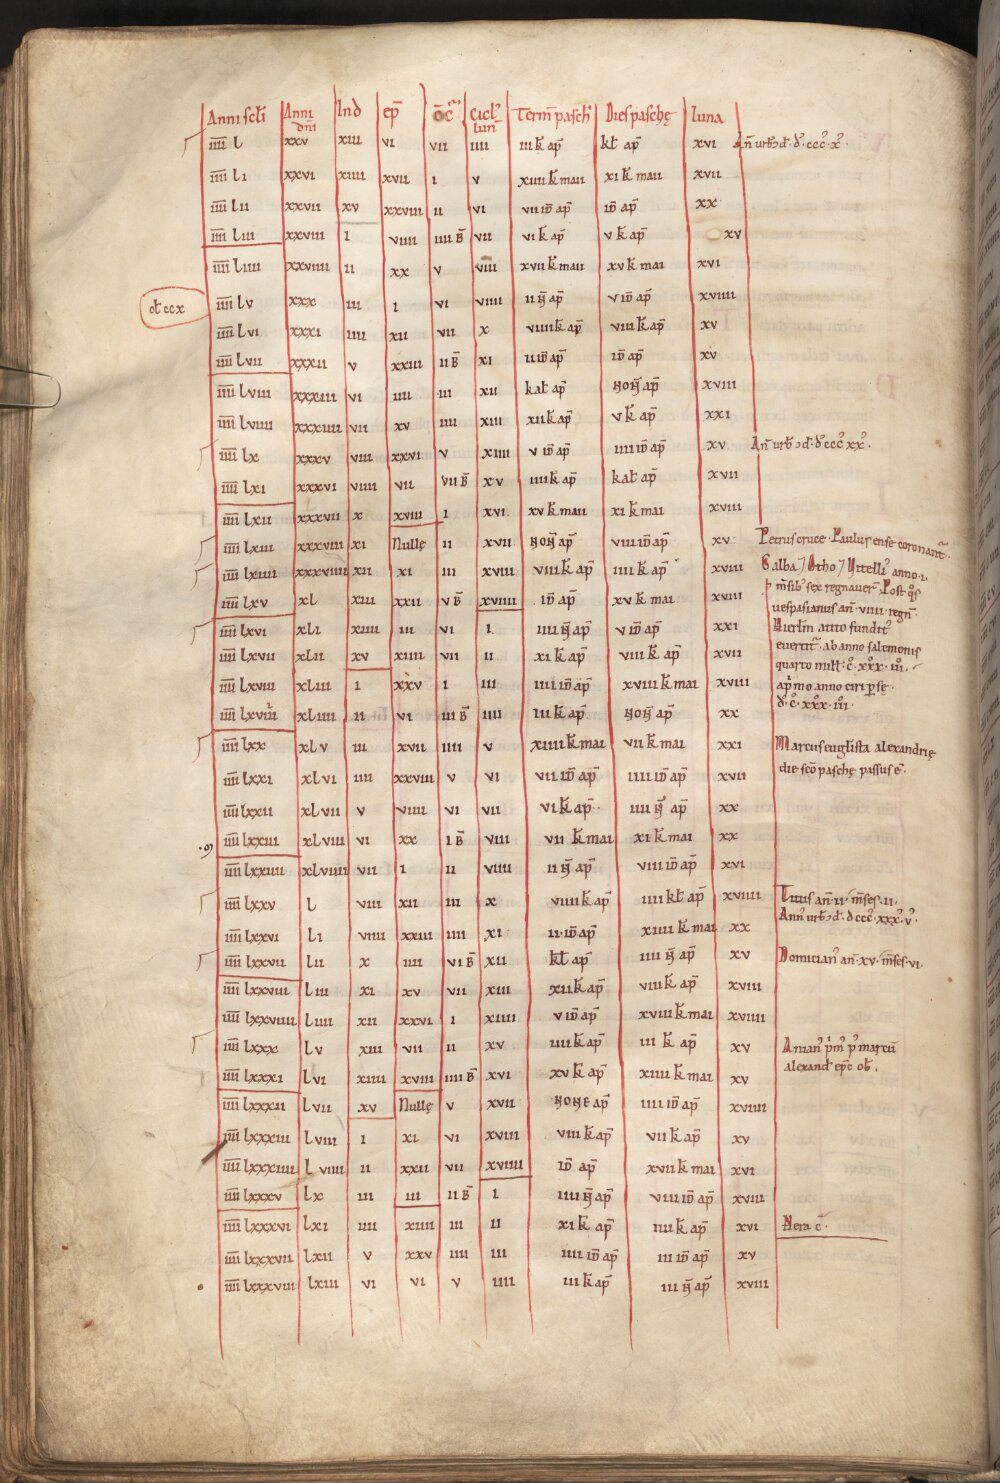 Anni scl̄i Anni dn̄i Ind ep̄ 9c̄r̄ Cicl' lun̄ Term̄ pasch' Dies paschę luna
īīīī l xxv xiii vi vii iiii iii k̄ ap̄ kl̄ ap̄ xvi An̄ urb̄ ↄd̄ dcccx
īīīī li xxvi xiiii xvii i v xiiii k̄ maii xi k̄ maii xvii
īīīī lii xxvii xv xxviii ii vi vii id̄ ap̄ id̄ ap̄ xx
īīīī liii xxviii i viiii iiii B̄ vii vi k̄ ap̄ v k̄ ap̄ xv
īīīī liiii xxviiii ii xx v viii xvii k̄ maii xv k̄ mai xvi
ol ccx īīīī lv xxx iii i vi viiii ii n̄ ap̄ v id̄ ap̄ xviiii
īīīī lvi xxxi iiii xii vii x viiii k̄ ap̄ viii k̄ ap̄ xv
īīīī lvii xxxii v xxiii ii B̄ xi ii id̄ ap̄ id̄ ap̄ xv
īīīī lviii xxxiii vi iiii iii xii kal̄ ap̄ non̄ ap̄ xviii
īīīī lviiii xxxiiii vii xv iiii xiii xii k̄ ap̄ v k̄ ap̄ xxi
īīīī lx xxxv viii xxvi v xiiii v id̄ ap̄ iiii id̄ ap̄ xv An̄ urb̄ ↄd̄ dcccxx.
īīīī lxi xxxvi viiii vii vii B̄ xv iiii k̄ ap̄ kal̄ ap̄ xvii
īīīī lxii xxxvii x xviii i xvi xv k̄ maii xi k̄ mai xviii
īīīī lxiii xxxviii xi Nullę ii xvii non̄ ap̄ viii id̄ ap̄ xv Petrus cruce Paulus ense coronant̄.
īīīī lxiiii xxxviiii xii xi iii xviii viii k̄ ap̄ iiii k̄ ap̄ xviii Galba Otho Vitell' anno i
īīīī lxv xl xiii xxii v B̄ xviiii id̄ ap̄ xv k̄ mai xviii m̄sib' sex regnauer̄ Post q̊s
uespasianus an̄ viiii regn̄
īīīī lxvi xli xiiii iii vi i iiii n̄ ap̄ v id̄ ap̄ xxi Hierl̄m a tito fundit'
īīīī lxvii xlii xv xiiii vii ii xi k̄ ap̄ viii k̄ ap̄ xvii euertit̄ ab anno salemonis
quarto mill' c̊ xxx iii
īīīī lxviii xliii i xxv i iii iii id̄ ap̄ xviii k̄ mai xviii ap̄mo anno ciri p se
īīīī lxviiii xliiii ii vi iii B̄ iiii iii k̄ ap̄ non̄ ap̄ xx d̊ c̊ xxx iii
īīīī lxx xlv iii xvii iiii v xiiii k̄ mai vii k̄ mai xxi Marcus euglista alexandrię
īīīī lxxi xlvi iiii xxviii v vi vii id̄ ap̄ iiii id̄ ap̄ xvii die sc̄o paschę passus ē.
īīīī lxxii xlvii v viiii vi vii vi k̄ ap̄ iiii n̄ ap̄ xx
īīīī lxxiii xlviii vi xx i B̄ viii vii k̄ mai xi k̄ mai xx
īīīī lxxiiii xlviiii vii i ii viiii ii n̄ ap̄ viii id̄ ap̄ xvi
īīīī lxxv l viii xii iii x viiii k̄ ap̄ iiii kl̄ ap̄ xviiii Titus an̄ ii m̄ses ii
Ann' urb̄ ↄd̄ dcccxxxv
īīīī lxxvi li viiii xxiii iiii xi ii id̄ ap̄ xiiii k̄ mai xx
īīīī lxxvii lii x iiii vi B̄ xii kl̄ ap̄ iiii n̄ ap̄ xv Domician' an̄ xv m̄ses vi
īīīī lxxviii liii xi xv vii xiii xii k̄ ap̄ viii k̄ ap̄ xviii
īīīī lxxviiii liiii xii xxvi i xiiii v id̄ ap̄ xviii k̄ mai xviiii
īīīī lxxx lv xiii vii ii xv iiii k̄ ap̄ iii k̄ ap̄ xv Anian' p'm' p' marcū
alexand̄ ep̄c ob̄.
īīīī lxxxi lvi xiiii xviii iiii B̄ xvi xv k̄ ap̄ xiiii k̄ mai xv
īīīī lxxxii lvii xv Nullę v xvii none ap̄ iiii id̄ ap̄ xviiii
īīīī lxxxiii lviii i xi vi xviii viii k̄ ap̄ vii k̄ ap̄ xv
īīīī lxxxiiii lviiii ii xxii vii xviiii id̄ ap̄ xvii k̄ mai xvi
īīīī lxxxv lx iii iii ii B̄ i iiii n̄ ap̄ viii id̄ ap̄ xviii
īīīī lxxxvi lxi iiii xiiii iii ii xi k̄ ap̄ iiii k̄ ap̄ xvi Nera c̄
īīīī lxxxvii lxii v xxv iiii iii iiii id̄ ap̄ iii id̄ ap̄ xv
īīīī lxxxviii lxiii vi vi v iiii iii k̄ ap̄ iii n̄ ap̄ xviii